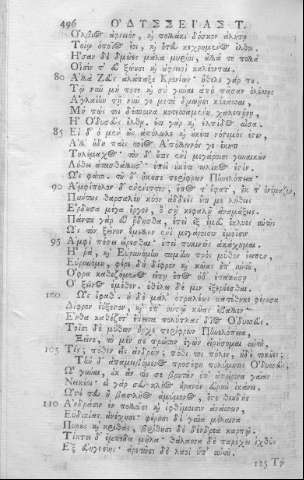 496 ὈΔΥΣΣΕΊΑΣ Τ.
Ὄλβιος ἀφνειὸν, καὶ πολλάκι δόσκον ἀλήτῃ
Τοίῳ ὁποῖος ἔοι, καὶ ὅτευ κεχρημένος ἔλθοι.
Ἦσαν δὲ δμῶες μάλα μυρίοι, ἄλλά τε πολλὰ
Οἷσίν τ' εὖ ζώουσι καὶ ἀφνειοὶ καλέονται.
80 Ἀλλὰ Ζεὺς ἀλάπαξε Κρονίων· ἤθελε γάρ που.
Τῷ νῦν μή ποτε καὶ σὺ γύναι ἀπὸ πᾶσαν ὀλέσσῃς
Ἀγλαΐην τῇ νῦν γε μετὰ δμωῇσι κέκασσαι,
Μή πώς τοι δέσποινα κοτεσσαμένη χαλεπήνῃ,
Ἢ Ὀδυσεὺς ἔλθῃ· ἔτι γὰρ καὶ ἐλπίδος αἶσα.
85 Εἰ δ' ὁ μὲν ὣς ἀπόλωλε καὶ οὐκέτι νόστιμός ἐστιν,
Ἀλλ' ἤδη παῖς τοῖος Ἀπόλλωνός γε ἕκητι
Τηλέμαχος· τὸν δ' οὔτις ἐνὶ μεγάροισι γυναικῶν
Λήθει ἀτασθάλλουσ'· ἐπεὶ οὐκέτι τηλίκος ἐστίν.
Ὣς φάτο· τοῦ δ' ἤκουσε περίφρων Πηνελόπεια·
90 Ἀμφίπολον δ' ἐνένιπεν, ἔπος τ' ἔφατ', ἔκ τ' ὀνόμαζεν,
Πάντως θαρσαλέη κύον ἀδδεὲς οὔ τι με λήθεις
Ἔρδουσα μέγα ἔργον, ὃ σῇ κεφαλῇ ἀναμάξεις.
Πάντα γὰρ εὖ ᾔδησθ', ἐπεὶ ἐξ ἐμεῦ ἔκλυες αὐτῆς
Ὡς τὸν ξεῖνον ἔμελλον ἐνὶ μεγάροισιν ἐμοῖσιν
95 Ἀμφὶ πόσει εἴρεσθαι· ἐπεὶ πυκινῶς ἀκάχημαι.
Ἦ ῥα, καὶ Εὐρυνόμην ταμίην πρὸς μῦθον ἔειπεν,
Εὐρυνόμη, φέρε δὴ δίφρον καὶ κῶας ἐπ' αὐτοῦ,
Ὄφρα καθεζόμενος εἴπῃ ἔπος ἠδ' ἐπακούσῃ
Ὁ ξεῖνος ἐμέθεν· ἐθέλω δέ μιν ἐξερέεσθαι.
100 Ὣς ἔφαθ'· ἡ δὲ μάλ' ὀτραλέως κατέθηκε φέρουσα
Δίφρον ἐΰξεστον, καὶ ἐπ' αὐτῷ κῶας ἔβαλλεν·
Ἔνθα καθέζετ' ἔπειτα πολύτλας δῖος Ὀδυσσεύς.
Τοῖσι δὲ μύθων ἄρχε περίφρων Πηνελόπεια,
Ξεῖνε, τὸ μέν σε πρῶτον ἐγὼν εἰρήσομαι αὐτή,
105 Τίς, πόθεν εἶς ἀνδρῶν; πόθι τοι πόλις, ἠδὲ τοκῆες;
Τὴν δ' ἀπαμειβόμενος προσέφη πολύμητις Ὀδυσσεύς,
Ὦ γύναι, οὐκ ἄν τίς σε βροτῶν ἐπ' ἀπείρονα γαῖαν
Νεικέοι· ἦ γάρ σευ κλέος οὐρανὸν εὐρὺν ἱκάνει.
Ὥστε τευ ἢ βασιλῆος ἀμύμονος, ὅστε θεουδὴς
110 Ἀνδράσιν ἐν πολλοῖσι καὶ ἰφθίμοισιν ἀνάσσων,
Εὐδικίας ἀνέχῃσι· φέρῃσι δὲ γαῖα μέλαινα
Πυροὺς καὶ κριθὰς, βρίθῃσι δὲ δένδρεα καρπῷ.
Τίκτει δ' ἔμπεδα μῆλα· θάλασσα δὲ παρέχει ἰχθῦς
Ἐξ εὐηγεσίης· ἀρετῶσι δὲ λαοὶ ὑπ' αὐτοῦ.
115 Τῷ